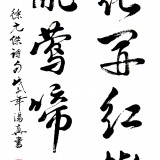 花开红树
乱莺啼
徐元杰诗句戊戌年
书